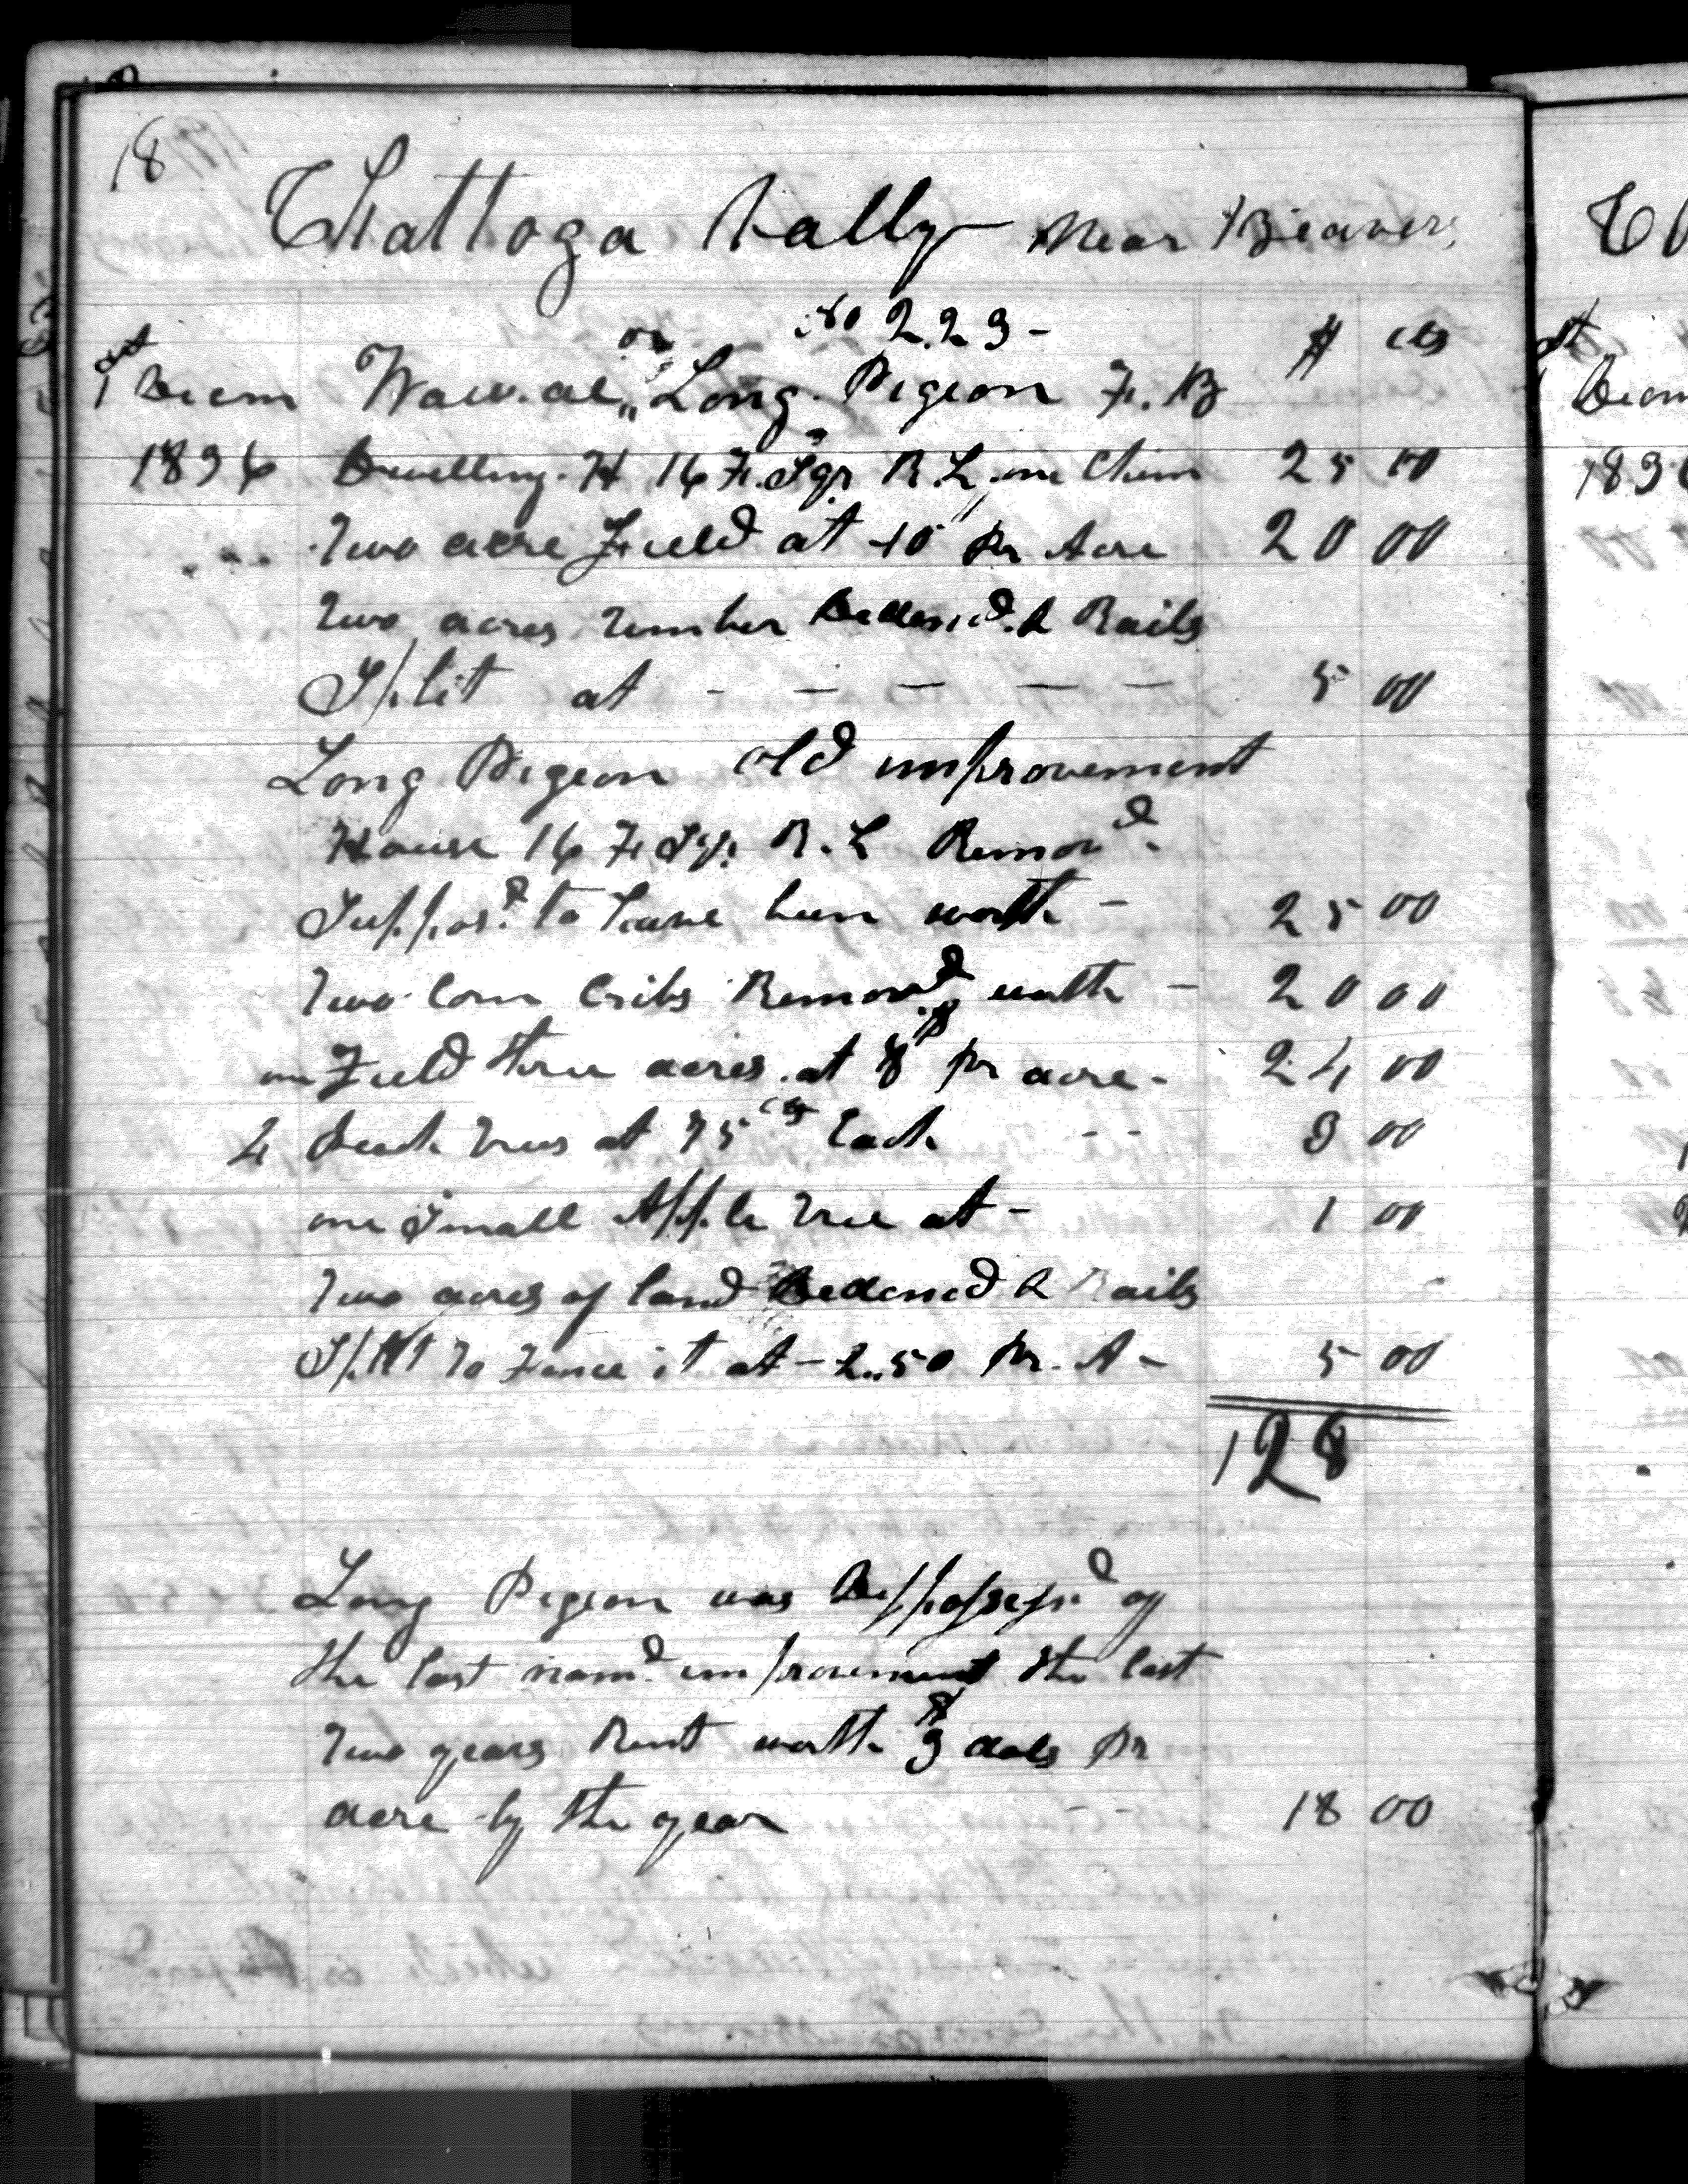 18
Chattoga Vally Near Beavers
or No 223 -
1st Decem Waw.al,, Long Pigeon F. B $ cts
1836 Dwelling H 16 Ft. Sqr. R. L. one Chim 25 00
Two acre Field at 10 pr Acre 20 00
Two acres Timber Deaden'd. & Rails
Split at - - - - - 5 00
Long Pigeon old improvement
House 16 Ft Sqr. R. L Remov'd.
Suppos'd to have been worth - 25 00
Two Corn Cribs Remov'd worth - 20 00
one Field three acres at 8$ pr acre - 24 00
4 Peach Trees at 75 cts Each - - 3 00
one Small Apple Tree at - 1 00
Two acres of land Dedened & Rails
Split To Fence it at - 2..50 Pr. A - 5 00
128
Long Pigeon was Disspossess'd of
the last nam'd improvement the last
Two years Rent worth $3 dols pr
acre by the year - - 18 00